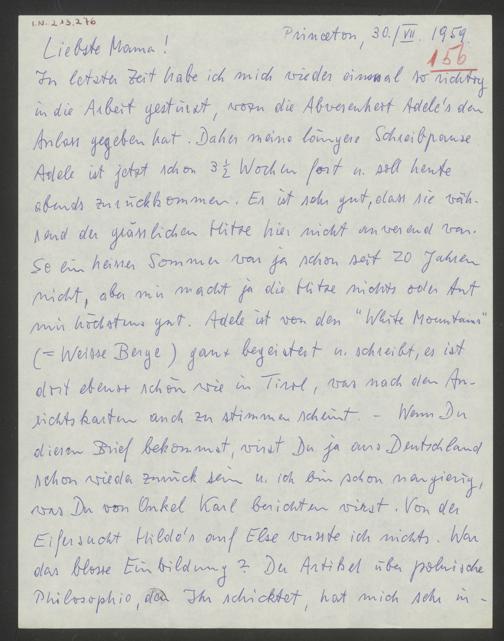 I.N. 213.276
Princeton, 30./VII. 1959
156
Liebste Mama!
In letzter Zeit habe ich mich wieder einmal so richtig
in die Arbeit gestürzt, wozu die Abwesenheit Adele's den
Anlass gegeben hat. Daher meine längere Schreibpause
Adele ist jetzt schon 3½ Wochen fort u. soll heute
abends zurückkommen. Es ist sehr gut, dass sie wäh-
rend der grässlichen Hitze hier nicht anwesend war.
So ein heisser Sommer war ja schon seit 20 Jahren
nicht, aber mir macht ja die Hitze nichts oder tut
mir höchstens gut. Adele ist von den "White Mountains"
(= Weisse Berge) ganz begeistert u. schreibt, es ist
dort ebenso schön wie in Tirol, was nach den An-
sichtskarten auch zu stimmen scheint. – Wenn Du
diesen Brief bekommst, wirst Du ja aus Deutschland
schon wieder zurück sein u. ich bin schon neugierig,
was Du von Onkel Karl berichten wirst. Von der
Eifersucht Hilda's auf Else wusste ich nichts. War
das blosse Einbildung? Der Artikel über polnische
Philosophie, den Ihr schicktet, hat mich sehr in-